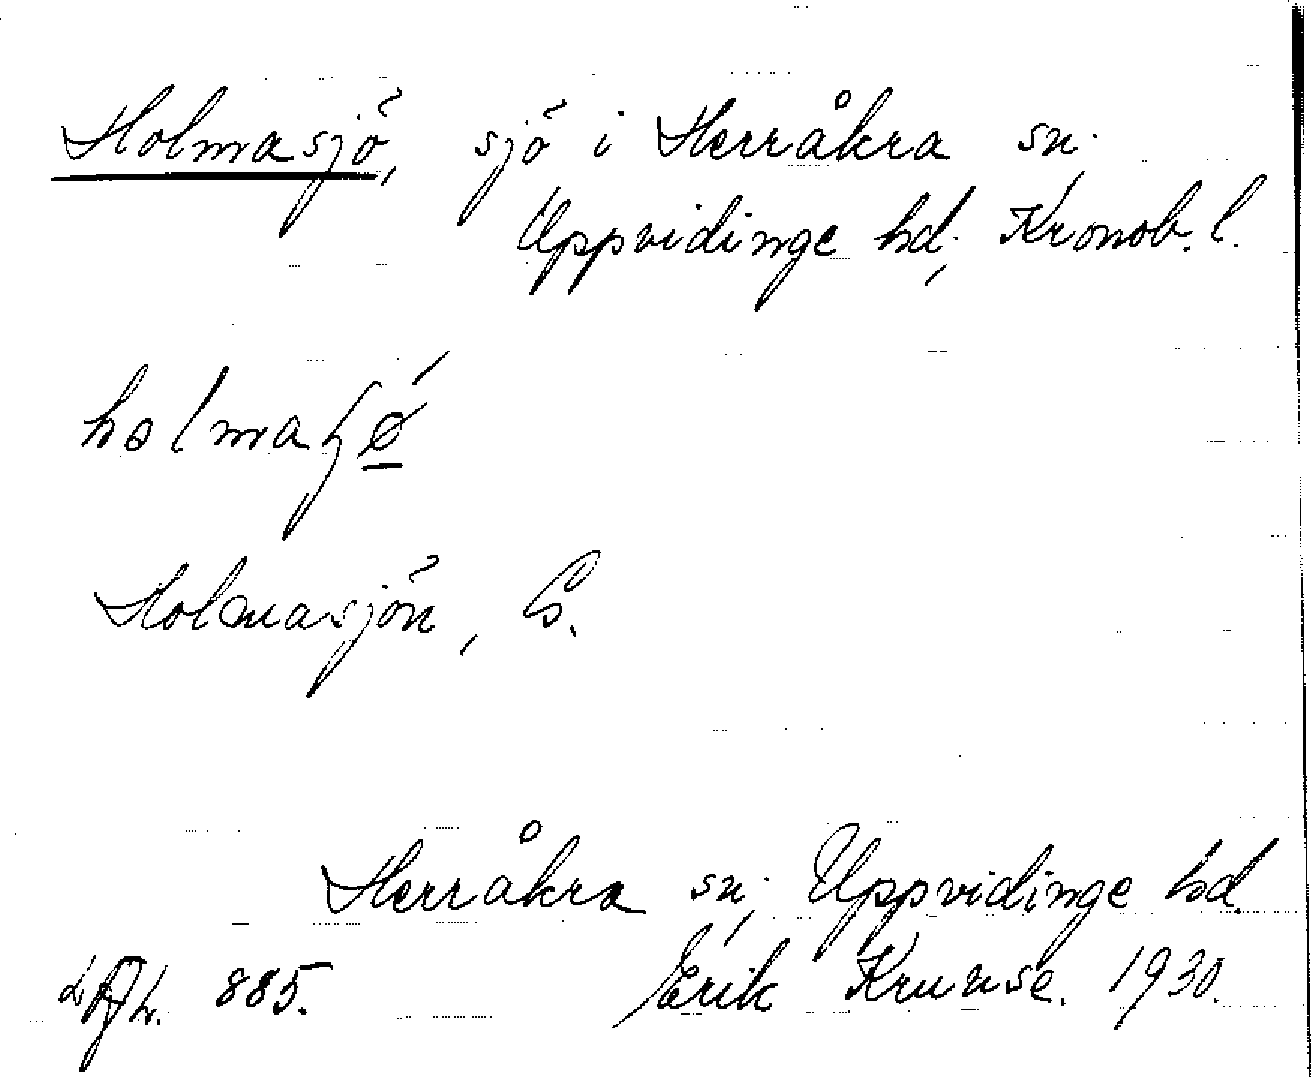 Holmasjö, sjö i Herråkra sn.
Uppvidinge hd, Kronob. l.
Holmasjön, G.
Herråkra sn, Uppvidinge hd.
885. Erik Krunse. 1930.